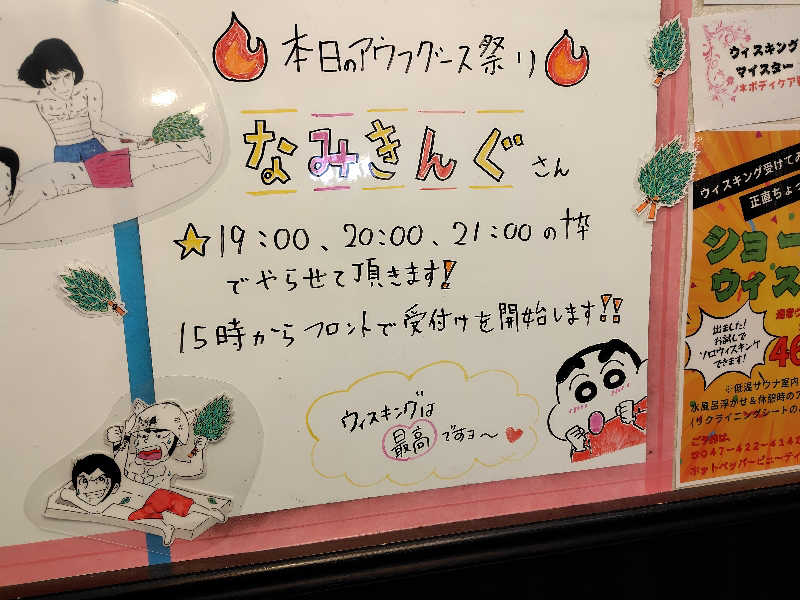 本日のアウフグース祭り
なみきんぐさん
★19:00、20:00、21:00の枠
でやらせて頂きます!
15時からフロントで受付けを開始します!!
ウィスキングは
最高ですョ〜
ウィスキング
マイスター
ウィスキング受けてみ
正直ちょっ
ショー
ウィス
出ました!
お試しで
ソロウィスキング
できます!
46
※低温サウナ室内
水風呂浮かせ&休憩時のア
(リクライニングシートの
ご予約は、
047-422-4142
ホットペッパービューティ